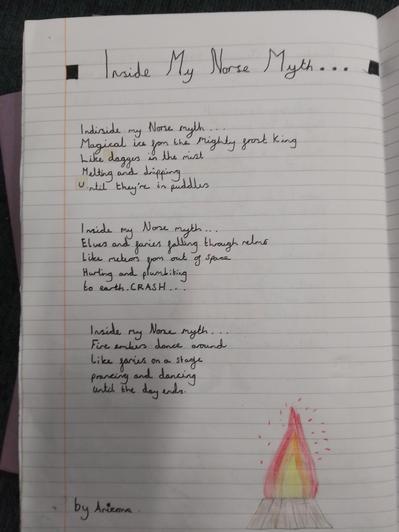 Inside My Norse Myth...
Indirside my Norse myth...
Magical ice fom the Mighty frost King
Like dagges in the mist
Melting and dripping
until they're in puddles
Inside my Norse myth...
Elves and faries falling through relms
Like meteors from out of space
Hurting and plumbiting
to earth. CRASH...
Inside my Norse myth...
Fire embers dance around
Like faries on a stage
prancing and dancing
until the day ends.
by Arizona.